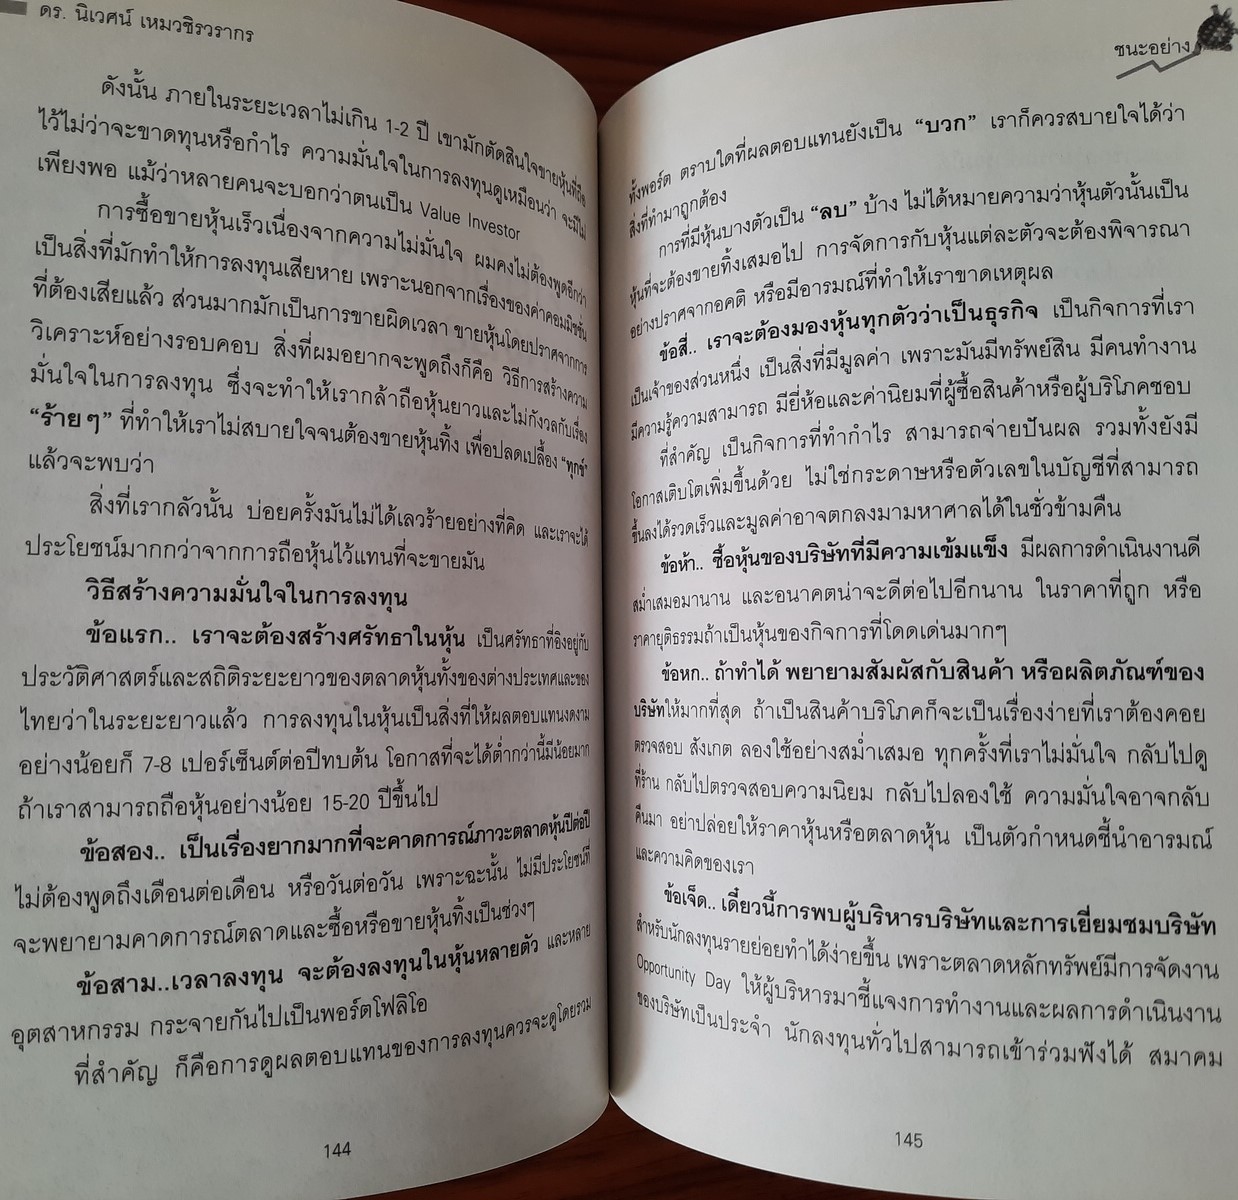 ดร. นิเวศน์ เหมวชิรวรากร
ดังนั้น ภายในระยะเวลาไม่เกิน 1-2 ปี เขามักตัดสินใจขายหุ้นที่ถือ
ไว้ไม่ว่าจะขาดทุนหรือกำไร ความมั่นใจในการลงทุนดูเหมือนว่า จะมีไม่
เพียงพอ แม้ว่าหลายคนจะบอกว่าตนเป็น Value Investor
การซื้อขายหุ้นเร็วเนื่องจากความไม่มั่นใจ ผมคงไม่ต้องพูดอีกว่า
เป็นสิ่งที่มักทำให้การลงทุนเสียหาย เพราะนอกจากเรื่องของค่าคอมมิชชั่น
ที่ต้องเสียแล้ว ส่วนมากมักเป็นการขายผิดเวลา ขายหุ้นโดยปราศจากการ
วิเคราะห์อย่างรอบคอบ สิ่งที่ผมอยากจะพูดถึงก็คือ วิธีการสร้างความ
มั่นใจในการลงทุน ซึ่งจะทำให้เรากล้าถือหุ้นยาวและไม่กังวลกับเรื่อง
“ร้ายๆ” ที่ทำให้เราไม่สบายใจจนต้องขายหุ้นทิ้ง เพื่อปลดเปลื้อง “ทุกข์”
แล้วจะพบว่า
สิ่งที่เรากลัวนั้น บ่อยครั้งมันไม่ได้เลวร้ายอย่างที่คิด และเราจะได้
ประโยชน์มากกว่าจากการถือหุ้นไว้แทนที่จะขายมัน
วิธีสร้างความมั่นใจในการลงทุน
ข้อแรก.. เราจะต้องสร้างศรัทธาในหุ้น เป็นศรัทธาที่อิงอยู่กับ
ประวัติศาสตร์และสถิติระยะยาวของตลาดหุ้นทั้งของต่างประเทศและของ
ไทยว่าในระยะยาวแล้ว การลงทุนในหุ้นเป็นสิ่งที่ให้ผลตอบแทนงดงาม
อย่างน้อยก็ 7-8 เปอร์เซ็นต์ต่อปีทบต้น โอกาสที่จะได้ต่ำกว่านี้มีน้อยมาก
ถ้าเราสามารถถือหุ้นอย่างน้อย 15-20 ปีขึ้นไป
ข้อสอง.. เป็นเรื่องยากมากที่จะคาดการณ์ภาวะตลาดหุ้นปีต่อปี
ไม่ต้องพูดถึงเดือนต่อเดือน หรือวันต่อวัน เพราะฉะนั้น ไม่มีประโยชน์ที่
จะพยายามคาดการณ์ตลาดและซื้อหรือขายหุ้นทิ้งเป็นช่วงๆ
ข้อสาม..เวลาลงทุน จะต้องลงทุนในหุ้นหลายตัว และหลาย
อุตสาหกรรม กระจายกันไปเป็นพอร์ตโฟลิโอ
ที่สำคัญ ก็คือการดูผลตอบแทนของการลงทุนควรจะดูโดยรวม
144
ชนะอย่าง
ทั้งพอร์ต ตราบใดที่ผลตอบแทนยังเป็น “บวก” เราก็ควรสบายใจได้ว่า
สิ่งที่ทำมาถูกต้อง
การที่มีหุ้นบางตัวเป็น “ลบ” บ้าง ไม่ได้หมายความว่าหุ้นตัวนั้นเป็น
หุ้นที่จะต้องขายทิ้งเสมอไป การจัดการกับหุ้นแต่ละตัวจะต้องพิจารณา
อย่างปราศจากอคติ หรือมีอารมณ์ที่ทำให้เราขาดเหตุผล
ข้อสี่.. เราจะต้องมองหุ้นทุกตัวว่าเป็นธุรกิจ เป็นกิจการที่เรา
เป็นเจ้าของส่วนหนึ่ง เป็นสิ่งที่มีมูลค่า เพราะมันมีทรัพย์สิน มีคนทำงาน
มีความรู้ความสามารถ มียี่ห้อและค่านิยมที่ผู้ซื้อสินค้าหรือผู้บริโภคชอบ
ที่สำคัญ เป็นกิจการที่ทำกำไร สามารถจ่ายปันผล รวมทั้งยังมี
โอกาสเติบโตเพิ่มขึ้นด้วย ไม่ใช่กระดาษหรือตัวเลขในบัญชีที่สามารถ
ขึ้นลงได้รวดเร็วและมูลค่าอาจตกลงมามหาศาลได้ในชั่วข้ามคืน
ข้อห้า.. ซื้อหุ้นของบริษัทที่มีความเข้มแข็ง มีผลการดำเนินงานดี
สม่ำเสมอมานาน และอนาคตน่าจะดีต่อไปอีกนาน ในราคาที่ถูก หรือ
ราคายุติธรรมถ้าเป็นหุ้นของกิจการที่โดดเด่นมากๆ
ข้อหก.. ถ้าทำได้ พยายามสัมผัสกับสินค้า หรือผลิตภัณฑ์ของ
บริษัทให้มากที่สุด ถ้าเป็นสินค้าบริโภคก็จะเป็นเรื่องง่ายที่เราต้องคอย
ตรวจสอบ สังเกต ลองใช้อย่างสม่ำเสมอ ทุกครั้งที่เราไม่มั่นใจ กลับไปดู
ที่ร้าน กลับไปตรวจสอบความนิยม กลับไปลองใช้ ความมั่นใจอาจกลับ
คืนมา อย่าปล่อยให้ราคาหุ้นหรือตลาดหุ้น เป็นตัวกำหนดชี้นำอารมณ์
และความคิดของเรา
ข้อเจ็ด.. เดี๋ยวนี้การพบผู้บริหารบริษัทและการเยี่ยมชมบริษัท
สำหรับนักลงทุนรายย่อยทำได้ง่ายขึ้น เพราะตลาดหลักทรัพย์มีการจัดงาน
Opportunity Day ให้ผู้บริหารมาชี้แจงการทำงานและผลการดำเนินงาน
ของบริษัทเป็นประจำ นักลงทุนทั่วไปสามารถเข้าร่วมฟังได้ สมาคม
145